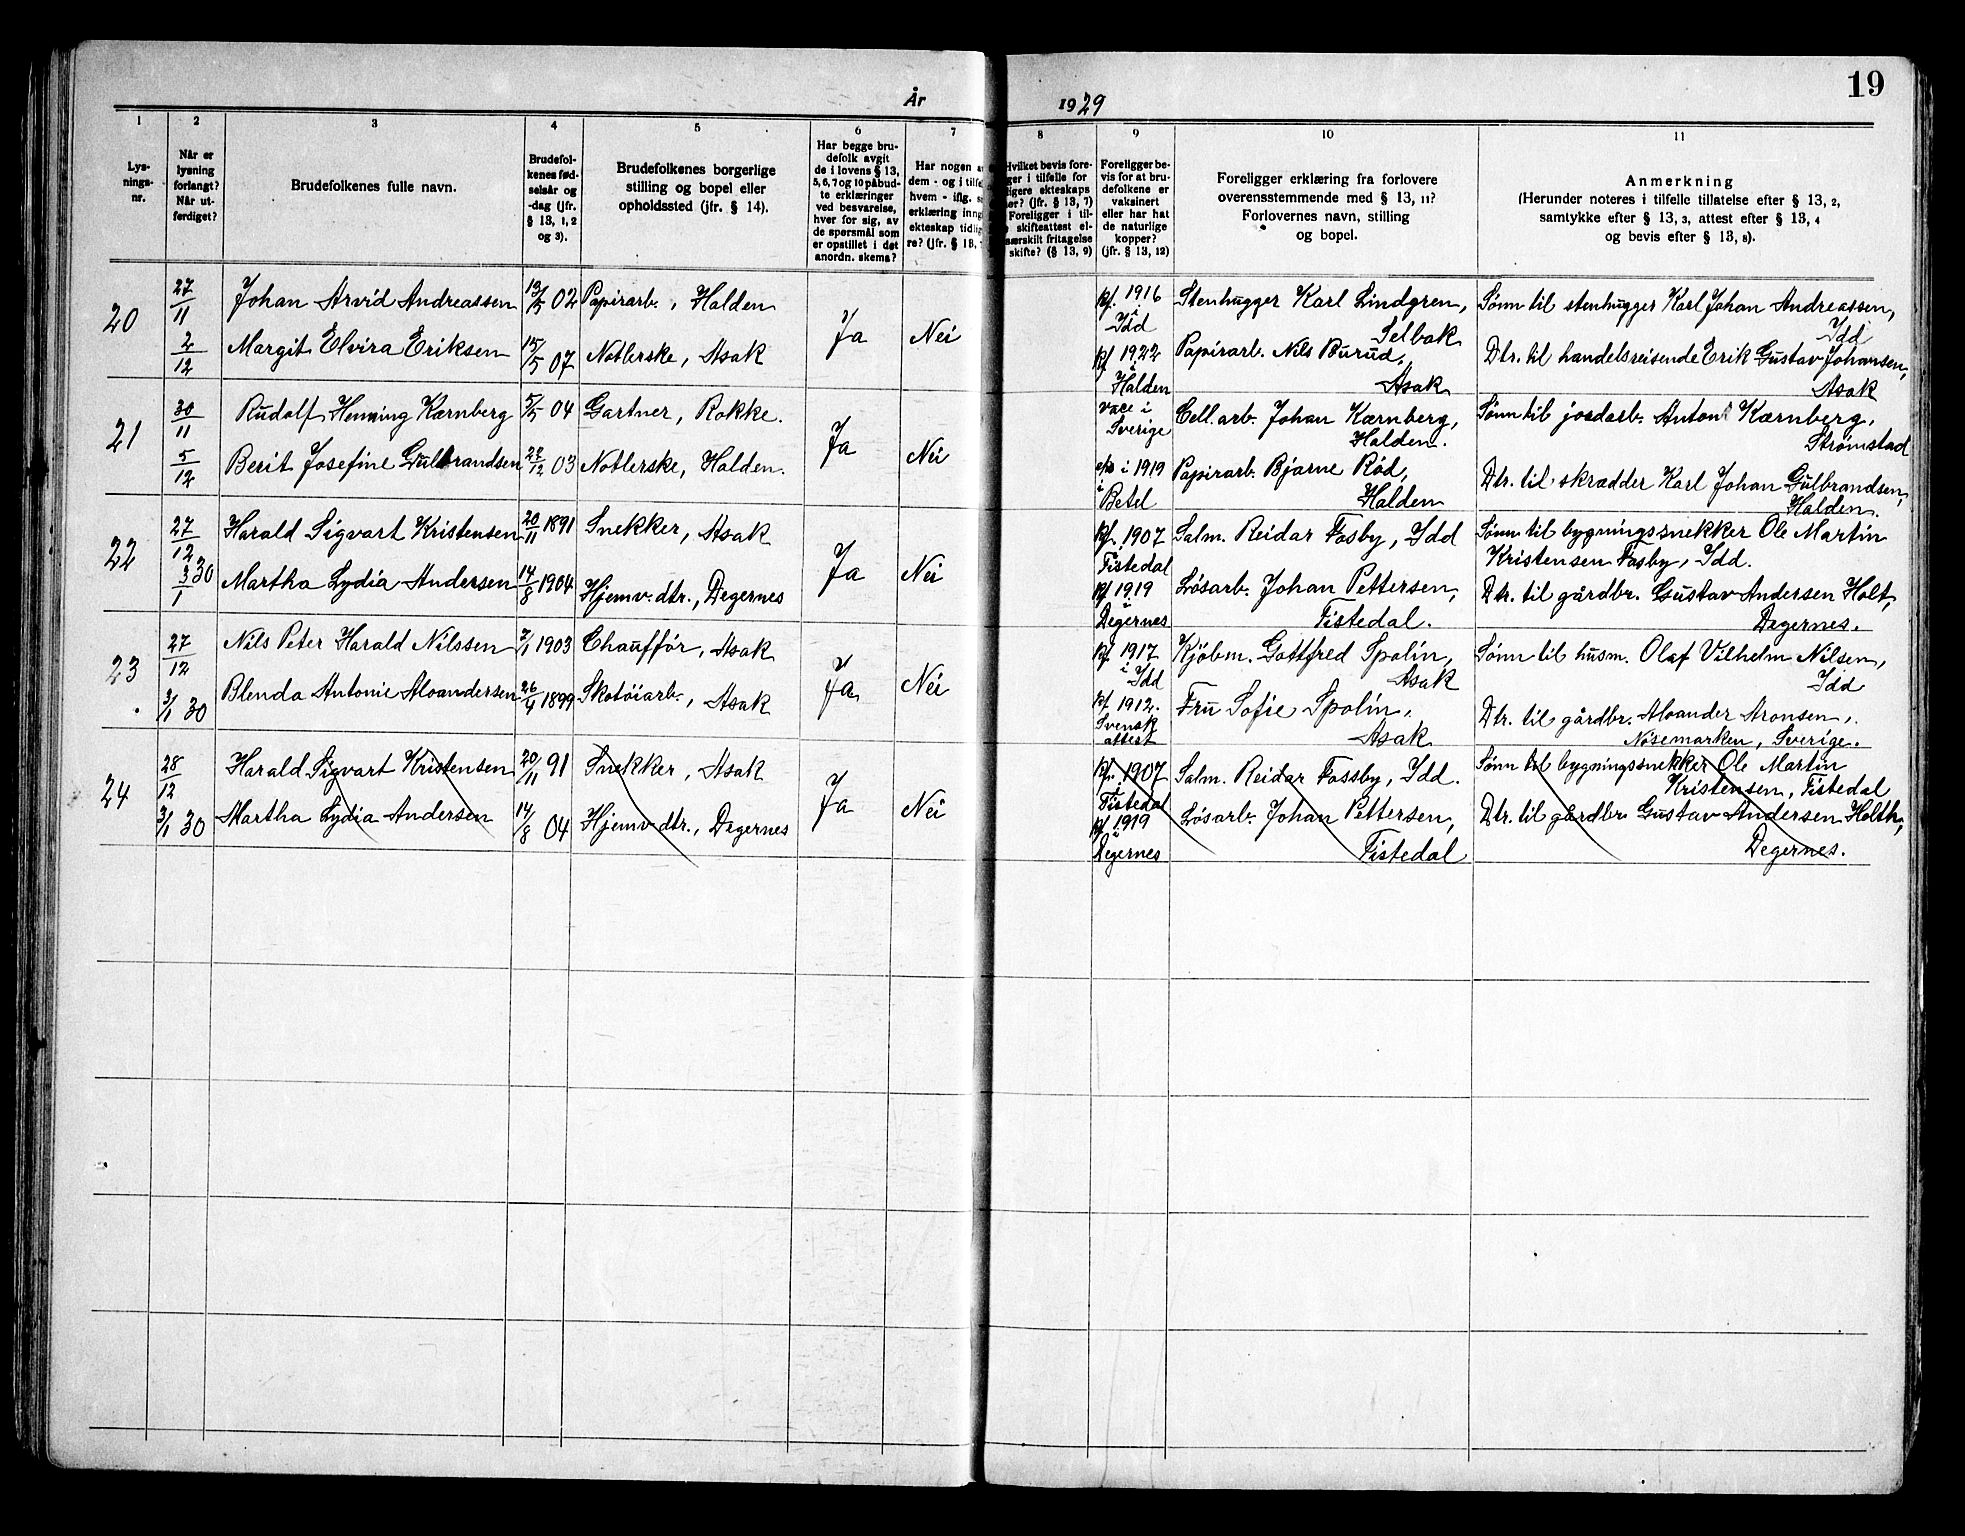 19
År 1929
1 2 3 4 5 6 7 8 9 10 11
Lys-
nings-
nr.
Når er
lysning
forlangt?
Når ut-
ferdiget?
Brudefolkenes fulle navn.
Brudefol-
kenes fød-
selsår og
-dag (jfr.
§ 13, 1, 2
og 3).
Brudefolkenes borgerlige
stilling og bopel eller
opholdssted (jfr. § 14).
Har begge bru-
defolk avgit
de i lovens § 13,
5, 6, 7 og 10 påbud-
te erklæringer
ved besvarelse,
hver for sig, av
de spørsmål som
er opstillet i det
anordn. skema?
Har nogen
dem - og i tilf
hvem - iflg.
erklæring inng
ekteskap tidlig
re? (jfr. § 13,
Hvilket bevis fore-
ger i tilfelle for
ligere ekteskaps
ør? (jfr. § 13, 7)
Foreligger i til-
skifteattest el-
særskilt fritagelse
skifte? (§ 13, 9)
Foreligger be-
vis for at bru-
defolkene er
vaksinert
eller har hat
de naturlige
kopper?
(jfr. § 13, 12)
Foreligger erklæring fra forlovere
overensstemmende med § 13, 11?
Forlovernes navn, stilling
og bopel.
Anmerkning
(Herunder noteres i tilfelle tillatelse efter § 13, 2,
samtykke efter § 13, 3, attest efter § 13, 4
og bevis efter § 13, 8).
20 27/11 Johan Arvid Andreassen 13/5 02 Papirarb., Halden Ja Nei kf. 1916 i Idd Stenhugger Karl Lindgren, Selbak Sønn til stenhugger Karl Johan Andreassen, Idd
2/12 Margit Elvira Eriksen 15/5 07 Notlerske, Asak kf 1922 i Halden Papirarb. Nils Burud, Asak Dtr. til handelsreisende Erik Gustav Johansen, Asak
21 30/11 Rudolf Henning Kærnberg 5/5 04 Gartner, Rokke. Ja Nei vacc i Sverige Cell.arb. Johan Kærnberg, Halden. Sønn til jordarb. Anton Kærnberg, Strømstad
5/12 Berit Josefine Gulbrandsen 22/12 03 Notlerske, Halden. i 1919 i Betel Papirarb. Bjarne Rød, Halden Dtr. til skrædder Karl Johan Gulbrandsen, Halden.
22 27/12 Harald Sigvart Kristensen 20/11 1891 Snekker, Asak Ja Nei kf. 1907 i Tistedal Salm. Reidar Fosby, Idd Sønn til bygningssnekker Ole Martin Kristensen Fosby, Idd.
3/1 30 Martha Lydia Andersen 14/8 1904 Hjemv. dtr., Degernes kf 1919 i Degernes Løsarb. Johan Pettersen, Tistedal. Dtr. til gårdbr. Gustav Andersen Holt, Degernes.
23 27/12 Nils Peter Harald Nilssen 7/1 1903 Chauffør, Asak Ja Nei kf. 1917 i Idd Kjøbm. Gottfred Spolin, Asak Sønn til husm. Olaf Vilhelm Nilsen, Idd
3/1 30 Blenda Antonie Aloandersen 26/4 1899 Skotøiarb., Asak kf 1912. Svensk attest Fru Sofie Spolin, Asak Dtr. til gårdbr. Aloander Aronsen, Nösemarken, Sverige.
24 28/12 Harald Sigvart Kristensen 20/11 91 Snekker, Asak Ja Nei kf. 1907 i Tistedal Salm. Reidar Fossby, Idd. Sønn til bygningssnekker Ole Martin Kristensen, Tistedal
3/1 30 Martha Lydia Andersen 14/8 04 Hjemv. dtr., Degernes kf 1919 i Degernes Løsarb. Johan Pettersen, Tistedal Dtr. til gårdbr. Gustav Andersen Holth, Degernes.